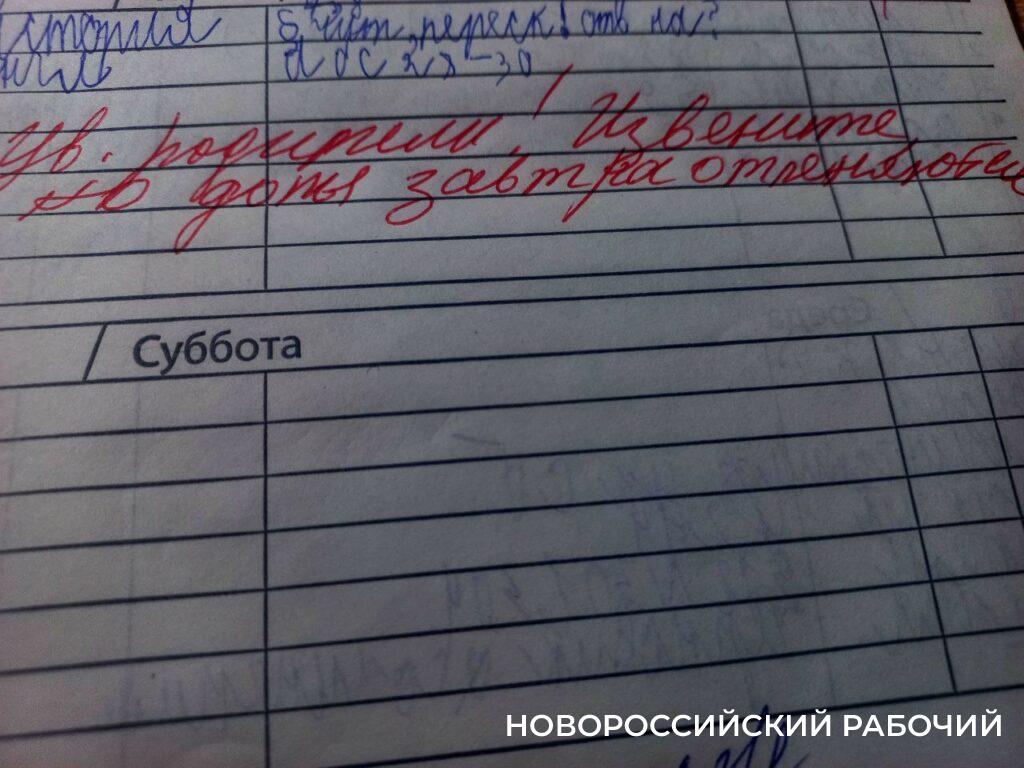 история § чит, переск! отв на?
Ув. родители! Извените
но допы завтра отменяются
Суббота
НОВОРОССИЙСКИЙ РАБОЧИЙ